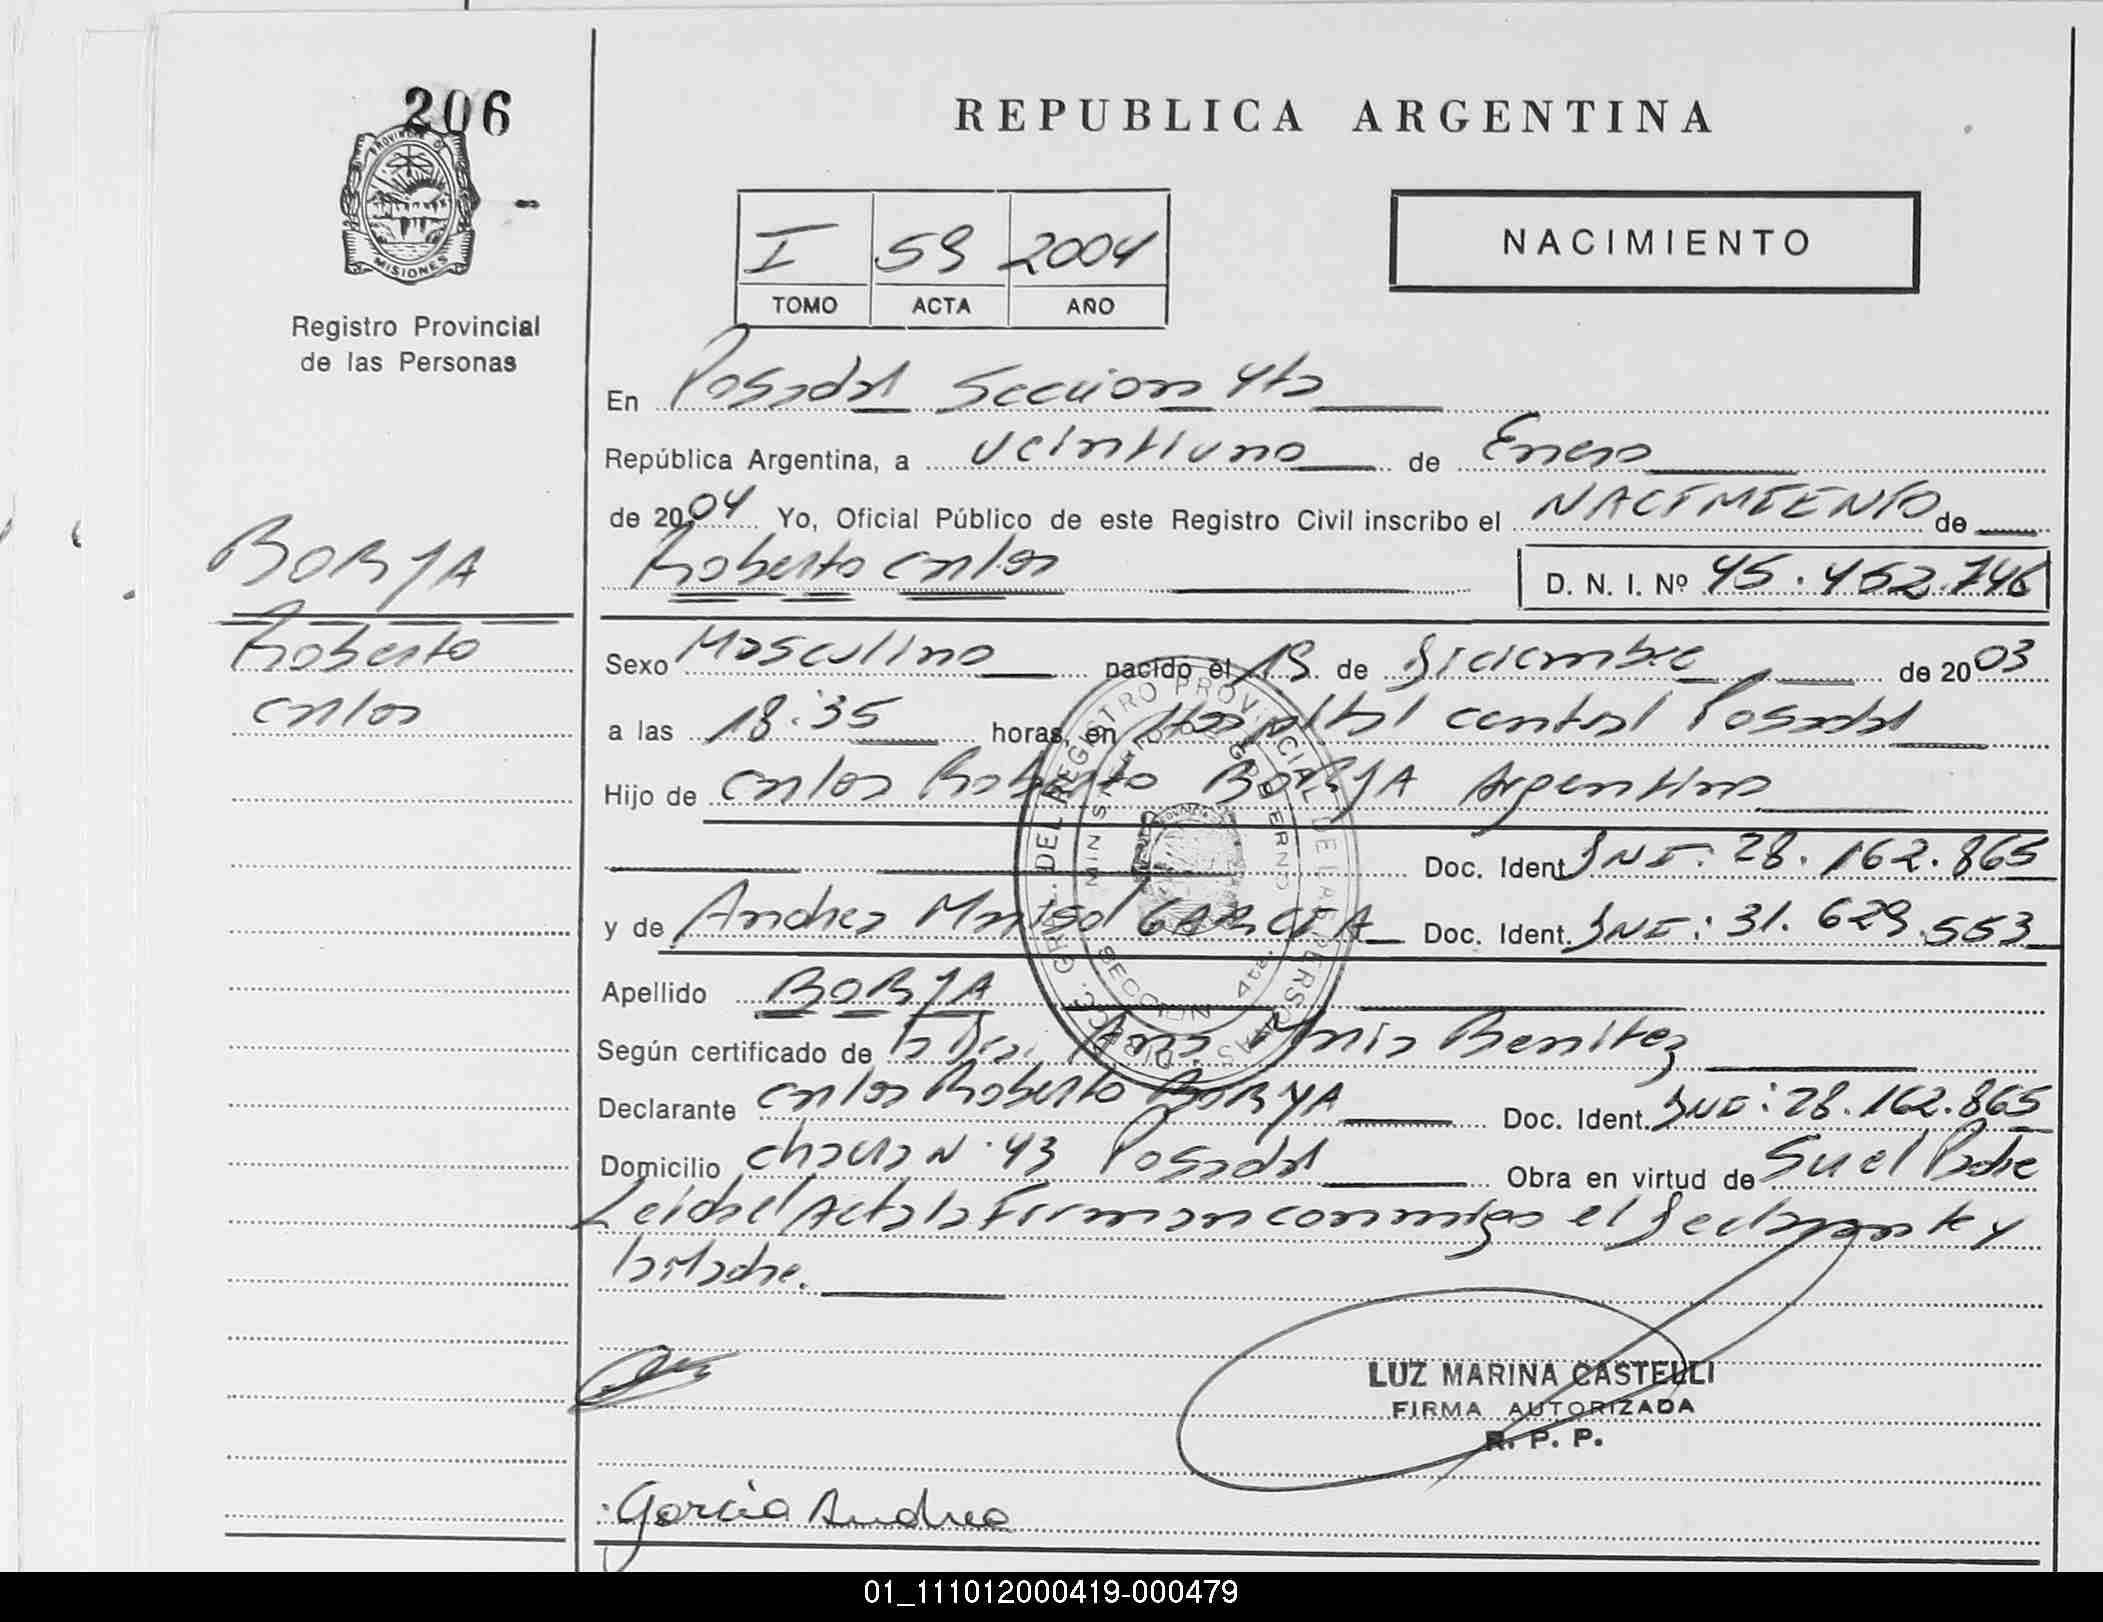 206
PROVINCIA DE
MISIONES
Registro Provincial
de las Personas
BORJA
Roberto
Carlos
REPUBLICA ARGENTINA
I 59 2004
TOMO ACTA AÑO
NACIMIENTO
En Posadas Seccion 4ta
República Argentina, a veintiuno de Enero
de 2004 Yo, Oficial Público de este Registro Civil inscribo el NACIMIENTO de
Roberto Carlos D. N. I. Nº 45.452.746
Sexo Masculino nacido el 19 de Diciembre de 2003
a las 18:35 horas, en Hospital central Posadas
Hijo de Carlos Roberto BORJA Argentino
Doc. Ident. DNI: 28.162.865
y de Andrea Marisol GARCIA Doc. Ident. DNI: 31.629.553
Apellido BORJA
Según certificado de la Dra. Ana María Benitez
Declarante Carlos Roberto BORJA Doc. Ident. DNI: 28.162.865
Domicilio chacra N. 43 Posadas Obra en virtud de Su el Padre
Leida el Acta la Firman conmigo el Declarante y
la Madre.
DIRECC. GRAL. DEL REGISTRO PROVINCIAL DE LAS PERSONAS
MINISTERIO DE GOBIERNO
SECCION 4ta.
LUZ MARINA CASTELLI
FIRMA AUTORIZADA
R. P. P.
Garcia Andrea
01_111012000419-000479